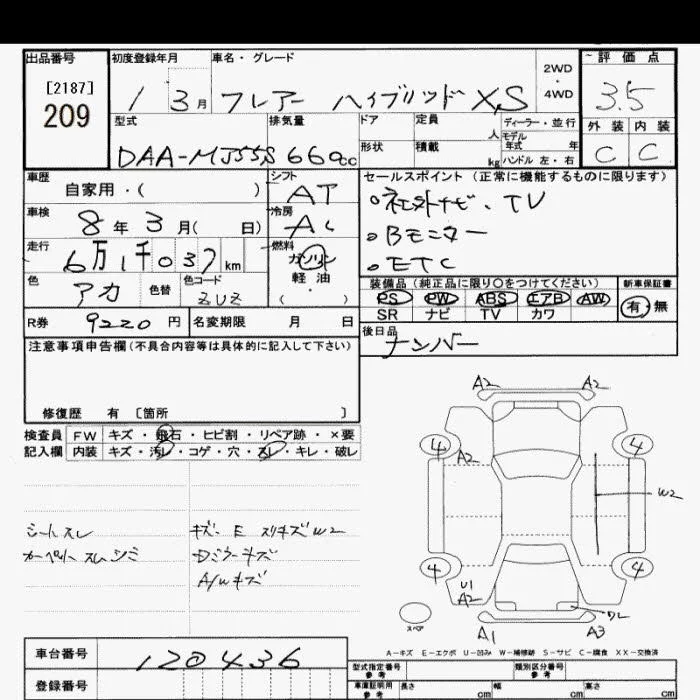 出品番号
[2187]
209
初度登録年月 車名・グレード
1 3月 フレアー ハイブリッド XS
2WD
・
4WD
評価点
3.5
型式 排気量 ドア 定員 人 ディーラー・並行
DAA-MJ55S 660cc
形状 積載 kg モデル年式 年
ハンドル 左・右
外装 内装
C C
車歴 自家用・( )
シフト AT
車検 8年3月( 日)
冷房 AC
走行 6万1千037km
燃料 ガソリン
軽油
・
( )
色 アカ 色替 色コード ZUZ
セールスポイント (正常に機能するものに限ります)
社外ナビ、TV
Bモニター
ETC
装備品 (純正品に限り○をつけてください) 新車保証書
PS PW ABS エアB AW 有・無
SR ナビ TV カワ
R券 9220円 名変期限 月 日
後日品
ナンバー
注意事項申告欄(不具合内容等は具体的に記入して下さい)
修復歴 有 〔箇所 〕
検査員 FW キズ・飛石・ヒビ割・リペア跡・×要
記入欄 内装 キズ・汚レ・コゲ・穴・スレ・キレ・破レ
シートスレ
カーペットスレ シミ
キズ・E スリキズ W2
Dミラーキズ
A/Wキズ
A2 A2
4 4
A2
W2
4 4
U1
A2
ワレ
A1 A3
スペア
A-キズ E-エクボ U-凹み W-補修跡 S-サビ C-腐食 XX-交換済
車台番号 120436
登録番号
型式指定番号 参考 類別区分番号 参考
車庫証明用 参考 長さ cm 幅 cm 高さ cm